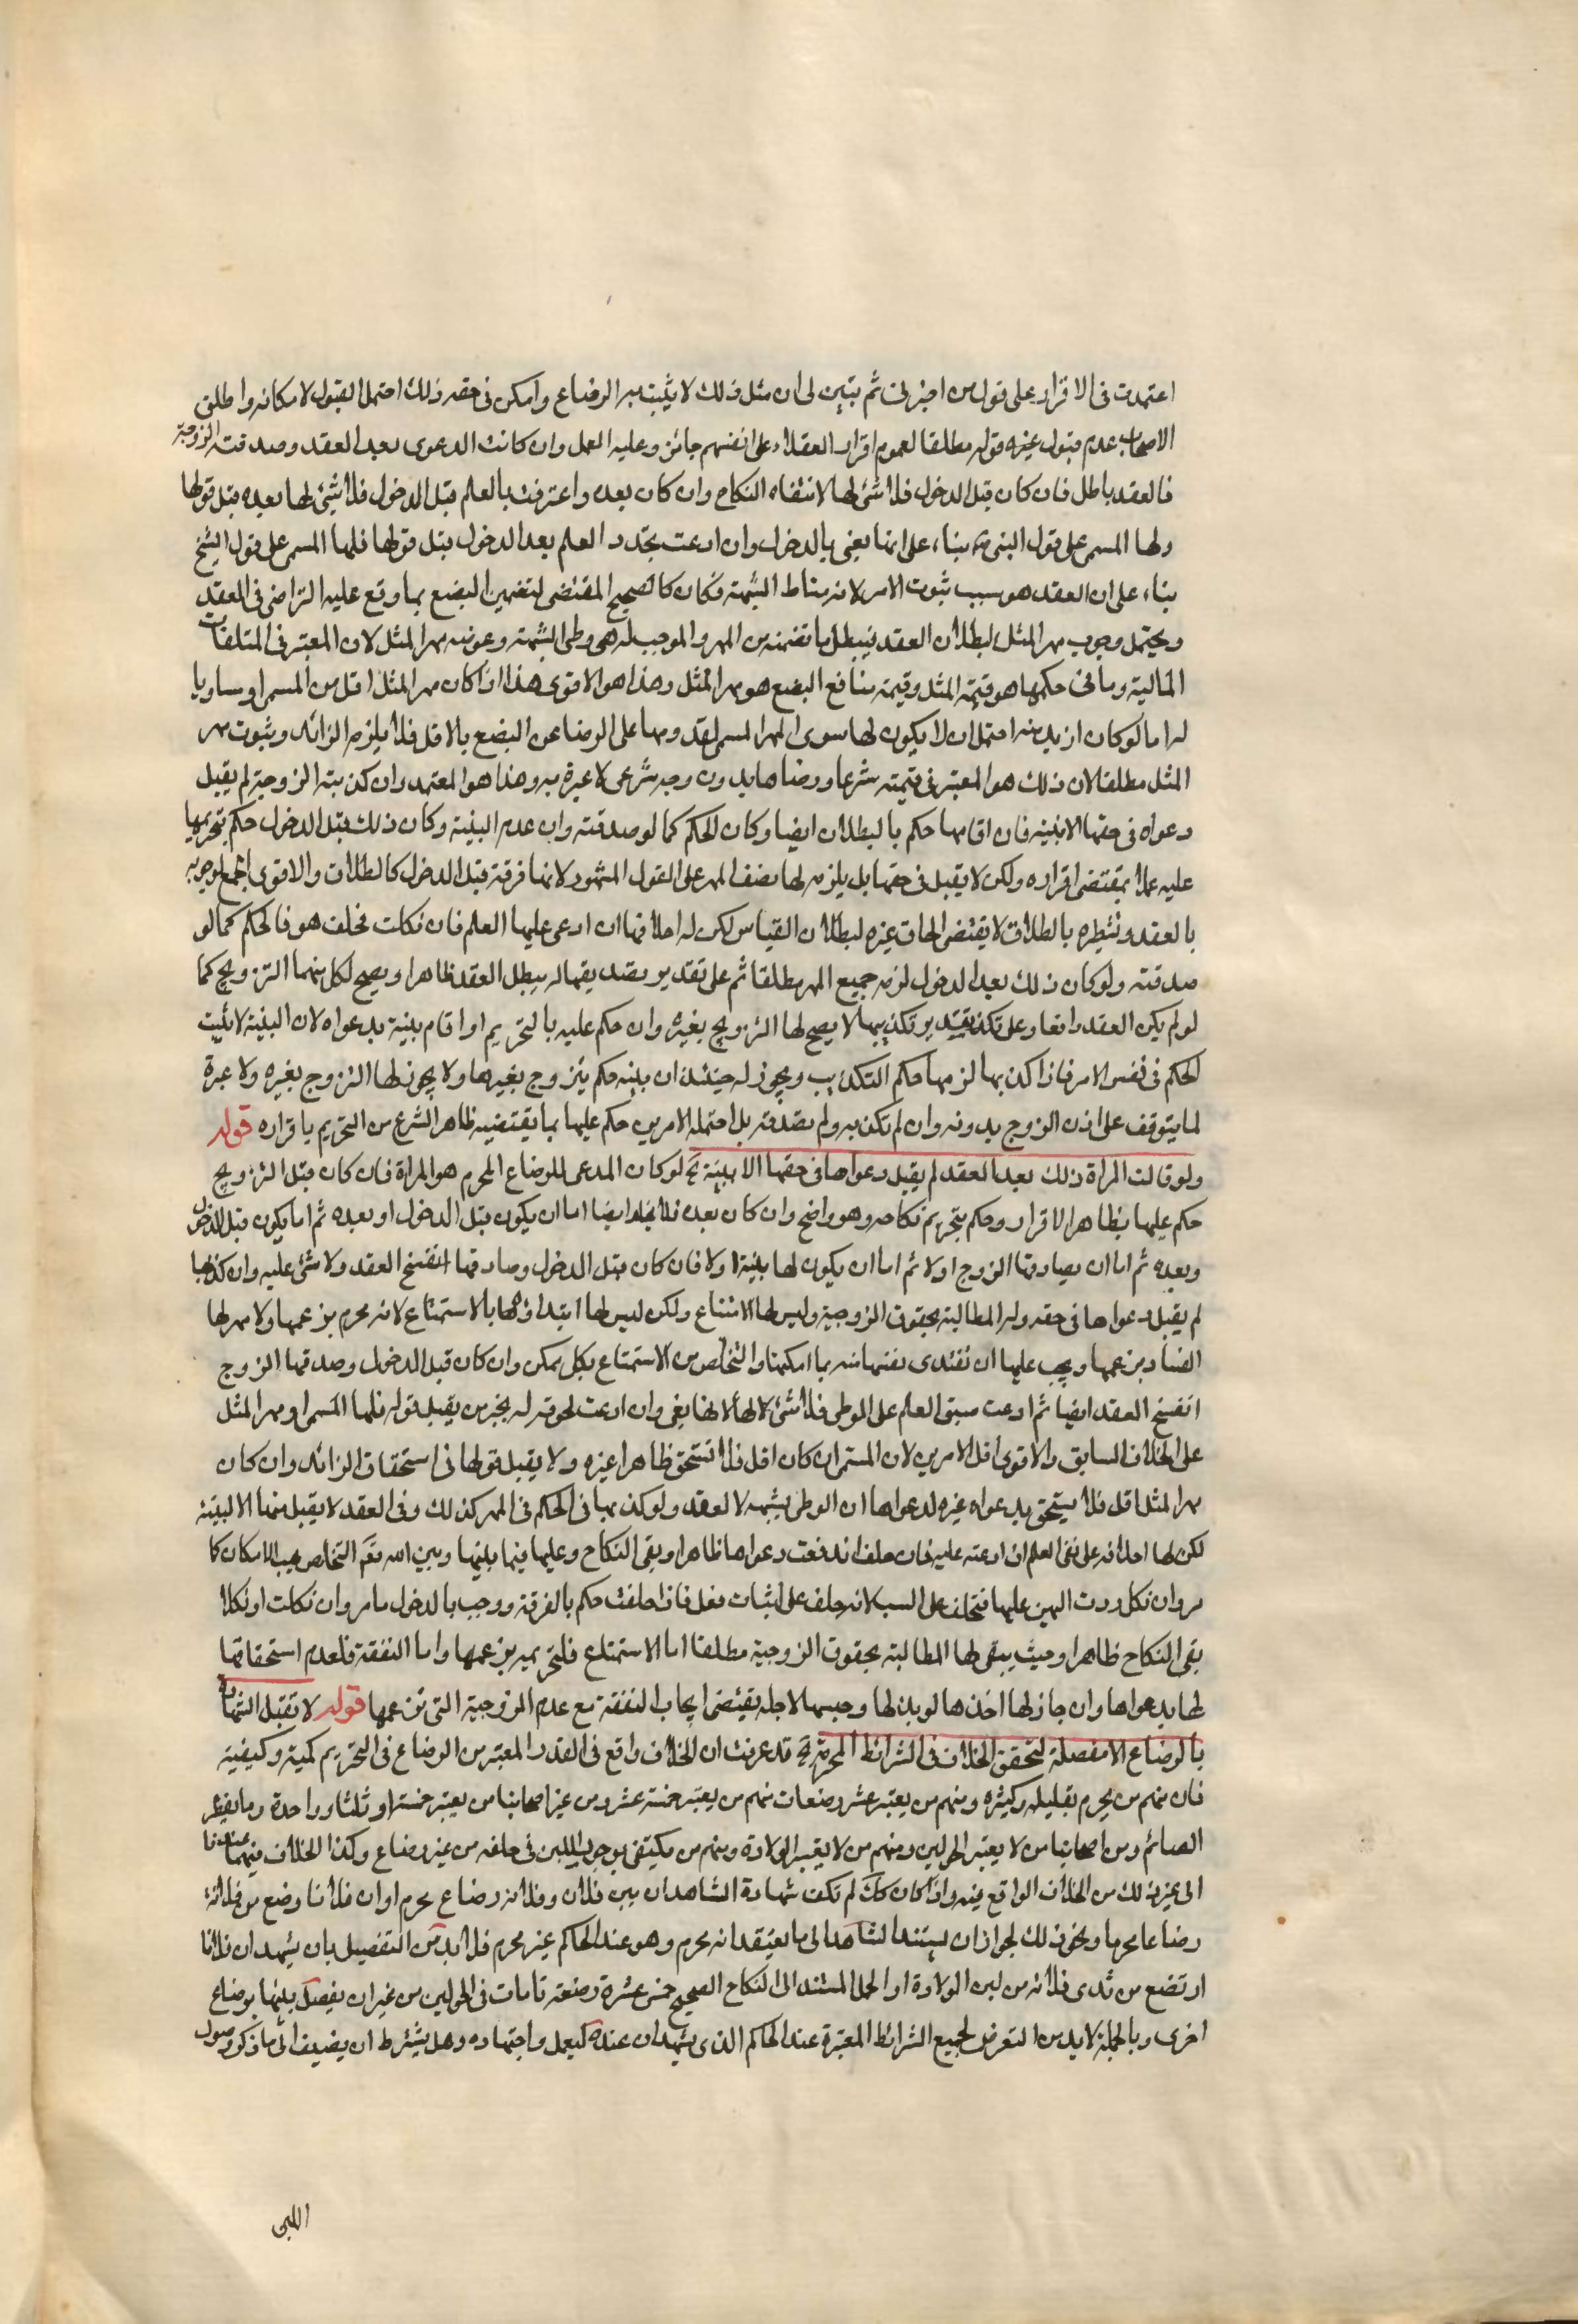 اعتمدت فى الاقرار على قول من اخبرنى ثم تبين لى ان مثل ذلك لا يثبت به الرضاع وامكن فى حقه ذلك احتمل القبول لامكانه واطلق
الاصحاب عدم قبول غيره قوله مطلقا لعموم اقرار العقلاء على انفسهم جائز وعليه العمل وان كانت الدعوى بعد العقد وصدقته الزوجة
فالعقد باطل فان كان قبل الدخول فلا شئ لها لانتفاء النكاح وان كان بعده واعترفت بالعلم قبل الدخول فلا شئ لها بعده قبل قولها
ولها المسمى على قول بناء على انها بغى بالدخول وان ادعت تجدد العلم بعد الدخول قبل قولها فلها المسمى على قول الشيخ
بناء على ان العقد هو سبب ثبوت الامر لانه مناط الشبهة فكان كالصحيح المقتضى لتضمين البضع بما وقع عليه التراضى فى العقد
ويحتمل وجوب مهر المثل لبطلان العقد فيبطل ما تضمنه من المهر والموجب له هو وطى الشبهة وعوضه مهر المثل لان المعتبر فى المتلفات
المالية وما فى حكمها هو قيمة المثل وقيمة منافع البضع هو مهر المثل وهذا هو الاقوى هذا اذا كان مهر المثل اقل من المسمى او مساويا
له اما لو كان ازيد منه احتمل ان لا يكون لها سوى المهر المسمى لقدومها على الرضا عن البضع بالاقل فلا يلزم الزائد وثبوت مهر
المثل مطلقا لان ذلك هو المعتبر فى قيمته شرعا ورضاها بدون وجه شرعى لا عبرة به وهذا هو المعتمد وان كذبته الزوجة لم يقبل
دعواه فى حقها الا ببينة فان اقامها حكم بالبطلان ايضا وكان الحكم كما لو صدقته وان عدم البينة وكان ذلك قبل الدخول حكم بتحريمها
عليه عملا بمقتضى اقراره ولكن لا يقبل فى حقها بل يلزمه لها نصف المهر على القول المشهور لانها فرقة قبل الدخول كالطلاق والاقوى الجمع لوجوبه
بالعقد وتشطيره بالطلاق لا يقتضى الحاق غيره لبطلان القياس لكن له احلافها ان ادعى عليها العلم فان نكلت فحلف هو فالحكم كما لو
صدقته ولو كان ذلك بعد الدخول لزمه جميع المهر مطلقا ثم على تقدير تصديقها له يبطل العقد ظاهرا ويصح لكل منهما التزويج كما
لو لم يكن العقد واقعا وعلى تقدير تكذيبها لا يصح لها التزويج بغيره وان حكم عليه بالتحريم او اقام بينة بدعواه لان البينة لا يثبت
الحكم فى نفس الامر فاذا كذبها لزمها حكم التكذيب ويجوز له حينئذ ان يتزوج بغيرها ولا يجوز لها التزوج بغيره ولا عبرة
لما يتوقف على اذن الزوج بدونه وان لم تكذبه ولم تصدقه بل احتمله الامرين حكم عليها بما يقتضيه ظاهر الشرع من التحريم باقراره قوله
ولو قالت المراة ذلك بعد العقد لم يقبل دعواها فى حقها الا ببينة الخ لو كان المدعى للرضاع المحرم هو المراة فان كان قبل التزويج
حكم عليها بظاهر الاقرار وحكم بتحريم نكاحه وهو واضح وان كان بعده فلا يخلو ايضا اما ان يكون قبل الدخول او بعده ثم اما يكون قبل الدخول
وبعده ثم اما ان يصادقها الزوج اولا ثم اما ان يكون لها بينة اولا فان كان قبل الدخول وصادقها انفسخ العقد ولا شئ عليه وان كذبها
لم يقبل دعواها فى حقه وله المطالبة بحقوق الزوجية وليس لها الامتناع ولكن ليس لها ابتداؤها بالاستمتاع لانه محرم بزعمها ولا مهر لها
الفساد بزعمها ويجب عليها ان تفتدى نفسها منه بما امكنها والتخلص من الاستمتاع بكل ممكن وان كان قبل الدخول وصدقها الزوج
انفسخ العقد ايضا ثم ادعت سبق العلم على الوطى فلا شئ لها لانها بغى وان ادعت لحوقه له بخبر من يقبل قوله فلها المسمى او مهر المثل
على الخلاف السابق والاقوى اقل الامرين لان المسمى ان كان اقل فلا تستحق ظاهرا غيره ولا يقبل قولها فى استحقاق الزائد وان كان
مهر المثل اقل فلا يستحق بدعواه غيره لدعواها ان الوطى بشبهه لا لعقد ولو كذبها فالحكم فى المهر كذلك وفى العقد لا يقبل منها الا البينة
لكن لها احلافه على نفى العلم ان ادعته عليه فان حلف اندفعت دعواها ظاهرا وبقى النكاح وعليها فيما بينها وبين الله تعالى التخلص بحسب الامكان كما
مر وان نكل ردت اليمين عليها فتحلف على السبب لانه حلف على اثبات فعل فاذا حلفت حكم بالفرقة ووجب بالدخول ما مر وان نكلت او نكلا
بقى النكاح ظاهرا وحيث يبقى لها المطالبة بحقوق الزوجية مطلقا اما الاستمتاع فلتحريمه بزعمها واما النفقة فلعدم استحقاقها
لها بدعواها وان جاز لها اخذها لو بذلها وحبسها لاجله يقتضى ايجاب النفقة مع عدم الزوجية التى تزعمها قوله لا تقبل الشهادة
بالرضاع الا مفصلة لتحقق الخلاف فى الشرائط المحرمة الخ قد عرفت ان الخلاف واقع فى القدر المعتبر من الرضاع فى التحريم كمية وكيفية
فان منهم من يحرم بقليله وكثيره ومنهم من يعتبر عشر رضعات منهم من يعتبر خمسة عشر ومن غير اصحابنا من يعتبر خمسة او ثلثا وواحدة وما يفطر
الصائم ومن اصحابنا من لا يعتبر الحولين ومنهم من لا يعتبر الولادة ومنهم من يكتفى بوجور اللبن فى حلقه من غير رضاع وكذا الخلاف
الى غير ذلك من الخلاف الواقع فيه واذا كان كك لم تكف شهادة الشاهدان بين فلان وفلانه رضاع محرم او ان فلانا رضع من فلانة
رضاعا محرما ونحو ذلك لجواز ان يستند الشاهد الى ما يعتقد انه محرم وهو عند الحاكم غير محرم فلا بد من التفصيل بان يشهد ان فلانا
ارتضع من ثدى فلانه من لبن الولادة او الحمل المستند الى النكاح الصحيح خمس عشرة رضعة تامات فى الحولين من غير ان يفصل بينها برضاع
اخرى وبالجملة لا بد من التعرض لجميع الشرائط المعتبرة عند الحاكم الذى يشهدان عنده ليعمل واجتهاده وهل يشترط ان يضيف الى ما ذكر وصول
اللبن